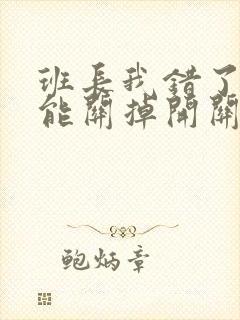 班长我错了
能關掉開關
鲍炳章